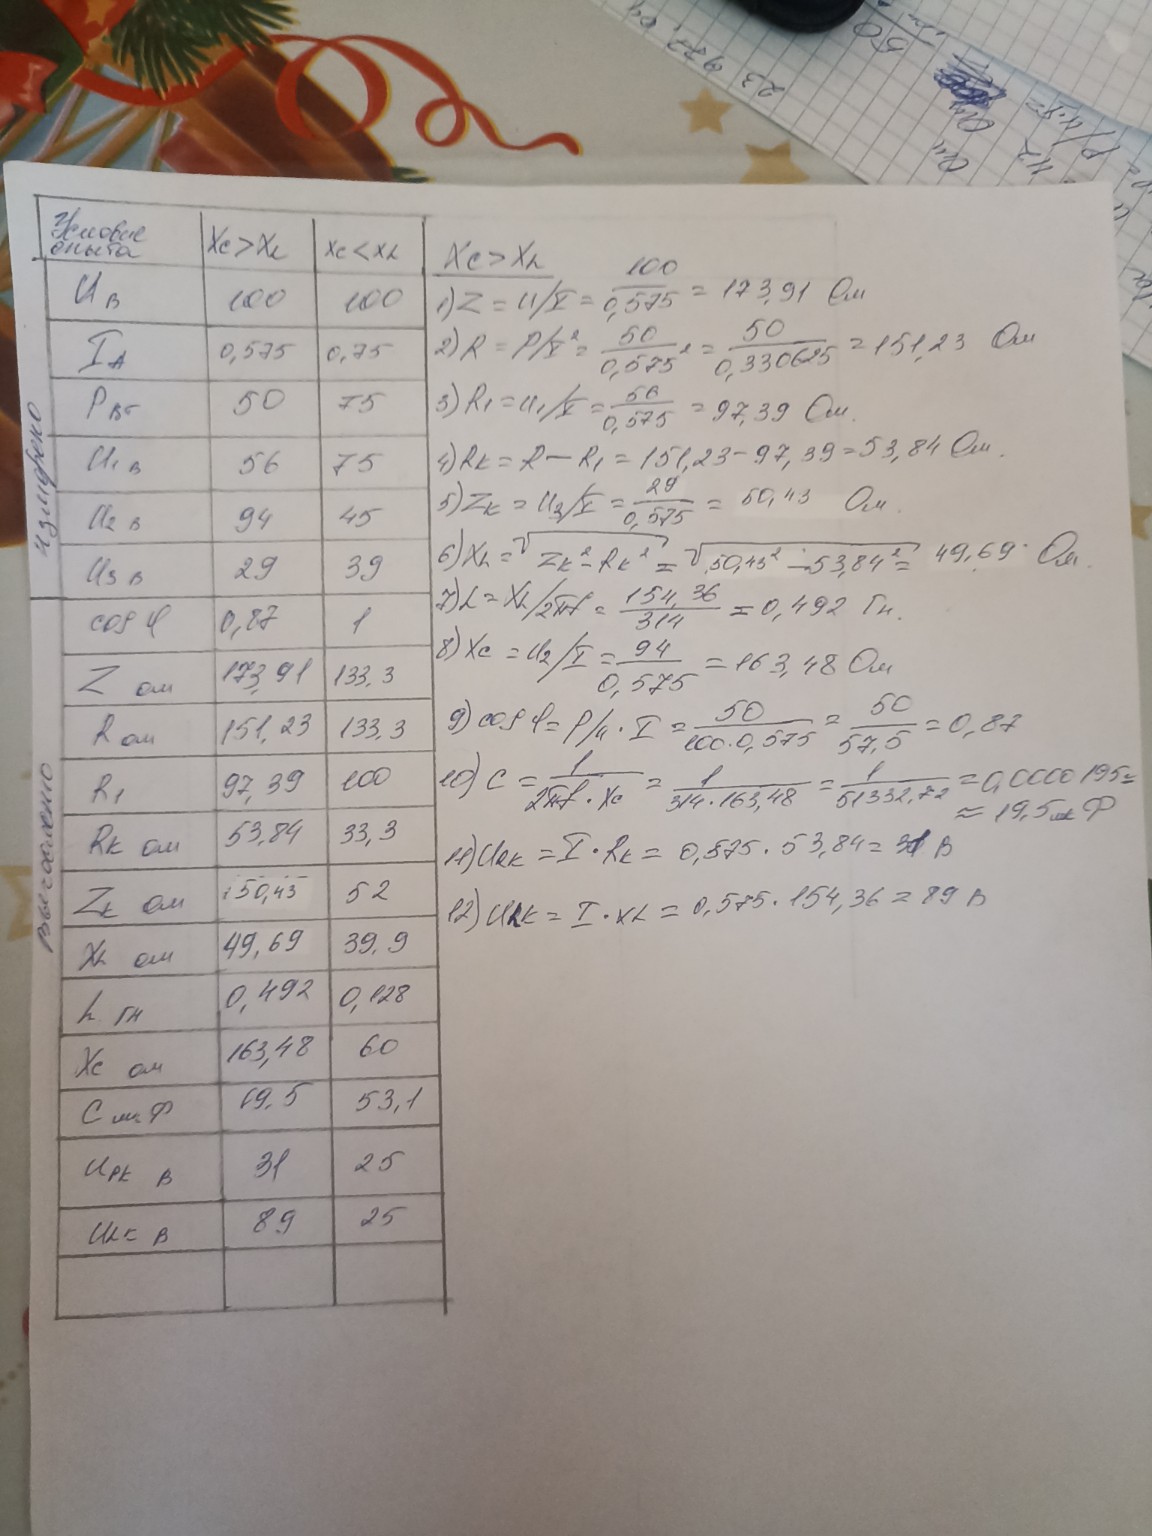 Условие опыта | Xc > XL | Xc < XL
измерено
U В | 100 | 100
I А | 0,575 | 0,75
P Вт | 50 | 75
U1 В | 56 | 75
U2 В | 94 | 45
U3 В | 29 | 39
cos φ | 0,87 | 1
Z ом | 173,91 | 133,3
R ом | 151,23 | 133,3
R1 | 97,39 | 100
Rк ом | 53,84 | 33,3
Zк ом | 50,43 | 52
XL ом | 49,69 | 39,9
L гн | 0,492 | 0,128
Xc ом | 163,48 | 60
C мкФ | 19,5 | 53,1
URK В | 31 | 25
ULK В | 89 | 25
Xc > XL
1) Z = U/I = 100/0,575 = 173,91 Ом
2) R = P/I² = 50/0,575² = 50/0,330625 = 151,23 Ом
3) R1 = U1/I = 56/0,575 = 97,39 Ом.
4) Rк = R − R1 = 151,23 − 97,39 = 53,84 Ом.
5) Zк = U3/I = 29/0,575 = 50,43 Ом.
6) XL = √Zк² − Rк² = √50,43² − 53,84² = 49,69 Ом.
7) L = XL/2πf = 154,36/314 = 0,492 Гн.
8) Xc = U2/I = 94/0,575 = 163,48 Ом
9) cos φ = P/U · I = 50/100·0,575 = 50/57,5 = 0,87
10) C = 1/2πf · Xc = 1/314 · 163,48 = 1/51332,72 = 0,0000195 =
≈ 19,5 мкФ
11) URK = I · Rк = 0,575 · 53,84 = 31 В
12) ULK = I · XL = 0,575 · 154,36 = 89 В
23 977,64
50
42